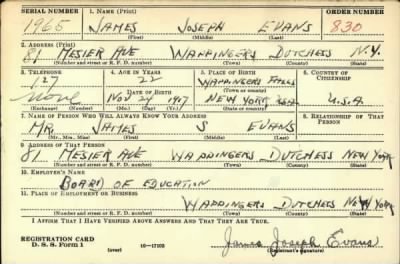 SERIAL NUMBER 1. NAME (Print) ORDER NUMBER
1965 JAMES JOSEPH EVANS 830
(First) (Middle) (Last)
2. ADDRESS (Print)
81 MESIER AVE WAPPINGERS DUTCHESS N.Y.
(Number and street or R. F. D. number) (Town) (County) (State)
3. TELEPHONE 4. AGE IN YEARS 5. PLACE OF BIRTH 6. COUNTRY OF CITIZENSHIP
127 22 WAPPINGERS FALLS
DATE OF BIRTH (Town or county)
none NOV 24 1917 NEW YORK U.S.A.
(Exchange) (Number) (Mo.) (Day) (Yr.) (State or country)
7. NAME OF PERSON WHO WILL ALWAYS KNOW YOUR ADDRESS 8. RELATIONSHIP OF THAT PERSON
MR. JAMES S EVANS
(Mr., Mrs., Miss) (First) (Middle) (Last)
9. ADDRESS OF THAT PERSON
81 MESIER AVE WAPPINGERS DUTCHESS NEW YORK
(Number and street or R. F. D. number) (Town) (County) (State)
10. EMPLOYER'S NAME
BOARD OF EDUCATION
11. PLACE OF EMPLOYMENT OR BUSINESS
WAPPINGERS DUTCHESS NEW YORK
(Number and street or R. F. D. number) (Town) (County) (State)
I AFFIRM THAT I HAVE VERIFIED ABOVE ANSWERS AND THAT THEY ARE TRUE.
REGISTRATION CARD
D. S. S. FORM 1 (over) 16—17105 James Joseph Evans
(Registrant's signature)